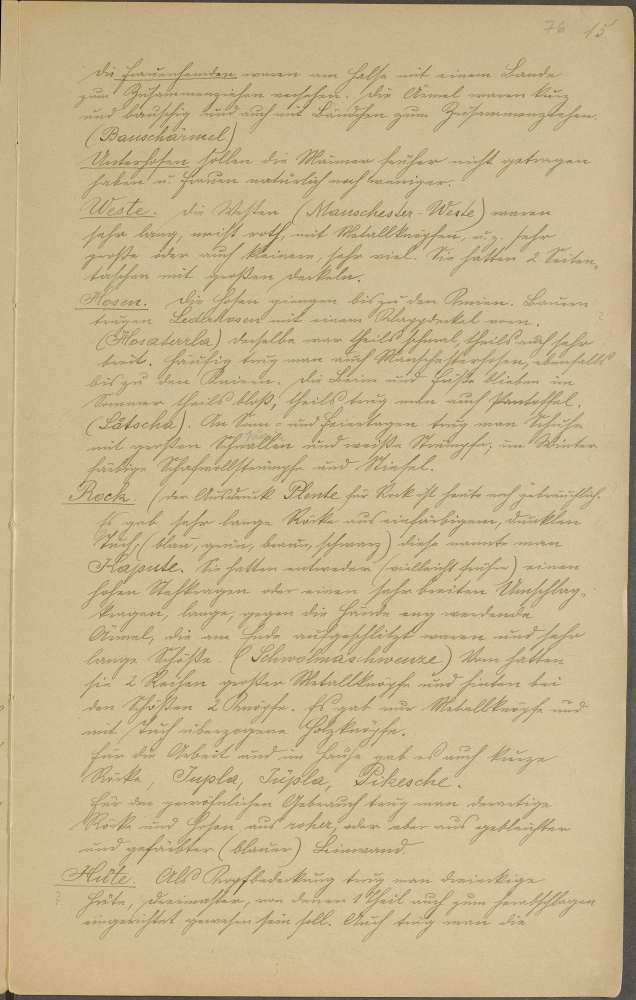 76 15
Die Frauenhemden waren am Halse mit einem Bande
zum Zusammenziehen versehen. Die Ärmel waren kurz
und bauschig und auch mit Bändchen zum Zusammenziehen.
(Bauschärmel)
Unterhosen sollen die Männer früher nicht getragen
haben u. Frauen natürlich noch weniger.
Weste. Die Westen (Manschester-Weste) waren
sehr lang, meist roth, mit Metallknöpfen, u. z. sehr
große oder auch kleinere, sehr viel. Sie hatten 2 Seiten-
taschen mit großen Deckeln.
Hosen. Die Hosen giengen bis zu den Knieen. Bauern
trugen Lederhosen mit einem Klappdeckel vorn.
(Hosaterrla) derselbe war theils schmal, theils auch sehr
breit. Häufig trug man auch Manschesterhosen, ebenfalls
bis zu den Knieen. Die Beine und Füße blieben im
Sommer theils bloß, theils trug man auch Pantoffel.
(Látscha). An Sonn- und Feiertagen trug man Schuhe
mit großen Schnallen und weiße Strümpfe, im Winter
färbige Schafwollstrümpfe und Stiefel.
Rock. (der Ausdruck Plente für Rock ist heute noch gebräuchlich.
Es gab sehr lange Röcke aus einfärbigem, dunklen
Tuch, (blau, grün, braun, schwarz) diese nannte man
Kapute. Sie hatten entweder (vielleicht früher) einen
hohen Stehkragen oder einen sehr breiten Umschlag-
kragen, lange, gegen die Hände eng werdende
Ärmel, die am Ende aufgeschlitzt waren und sehr
lange Schöße. (Schwolmaschwenze) Vorn hatten
sie 2 Reihen großer Metallknöpfe und hinten bei
den Schößen 2 Knöpfe. Es gab nur Metallknöpfe und
mit Tuch überzogene Holzknöpfe.
Für die Arbeit und im Hause gab es auch kurze
Röcke, Jupla, Jüpla, Pikesche.
Für den gewöhnlichen Gebrauch trug man derartige
Röcke und Hosen aus roher, oder aber aus gebleichter
und gefärbter (blauer) Leinwand.
Hüte. Als Kopfbedeckung trug man dreieckige
Hüte, Dreimaster, von denen 1 Theil auch zum herabschlagen
eingerichtet gewesen sein soll. Auch trug man die